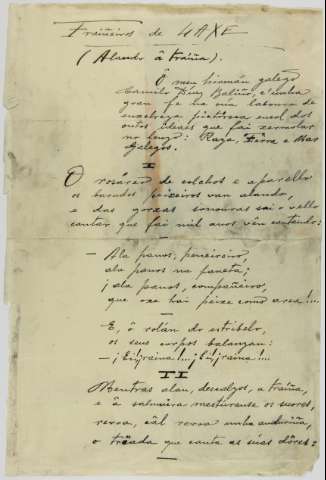 Traiñeiros de LAXE
(Alando â traíña).
Ô meu hirmán galego
Camilo Díaz Baliño, c'unha
gran fe na súa laboura de
enxebreza pictórica encol dos
outos ideaes que fai
no lenzo: Raza, Terra e Mar
Galegos.
I
O rosárεο de colchos e aparello
os barudos peixeiros van alando,
e das gorxas sonouras sai o vello
cantar que fai mil anos vên cantando:
— Ala panos, peneireiro,
ala panos na faneca;
¡ala panos, compañeiro,
que xa hai peixe como area!!...
E, ô rolán do estribelo,
os seus corpos balanzan:
— ¡Eijjraina!...¡Eijjraina!...
II
Mentras alan, descalzos, a traíña,
e â salmoira mesturanse os suores,
revoa, cál revoa unha anduriña,
o que canta as súas dôres: